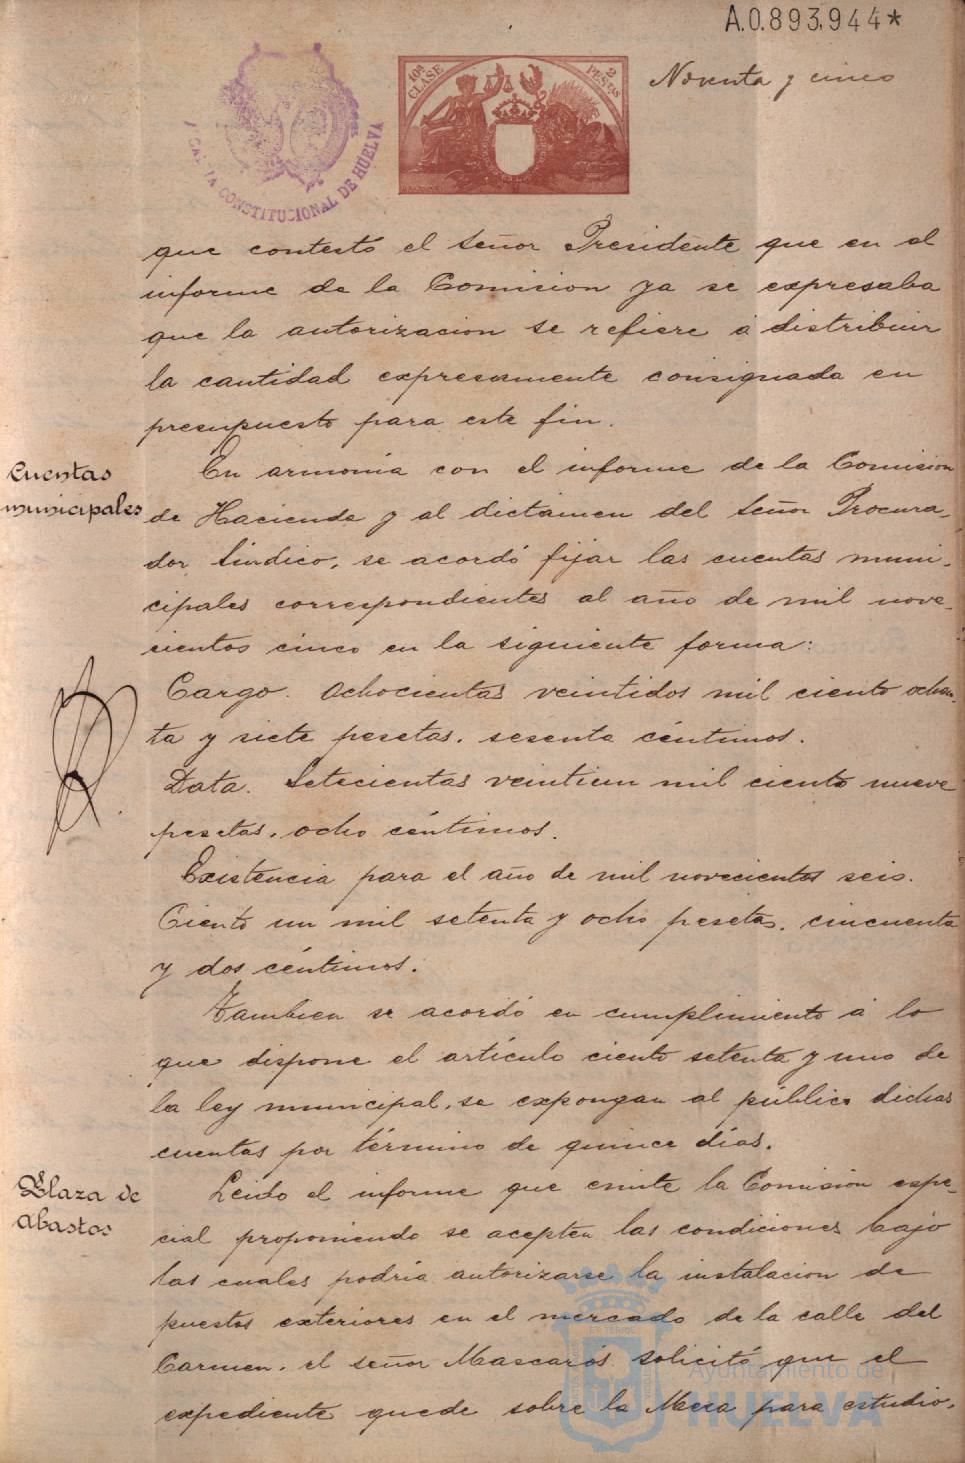 A.0.893,944*
10ª CLASE
2 PESETAS
Noventa y cinco
ALCALDIA CONSTITUCIONAL DE HUELVA
que contestó el señor Presidente que en el
informe de la Comision ya se expresaba
que la autorizacion se refiere á distribuir
la cantidad expresamente consignada en
presupuesto para este fin.
Cuentas
municipales
En armonía con el informe de la Comision
de Hacienda y al dictamen del señor Procura-
dor Síndico, se acordó fijar las cuentas muni-
cipales correspondientes al año de mil nove-
cientos cinco en la siguiente forma:
Cargo. Ochocientas veintidos mil ciento ochen-
ta y siete pesetas, sesenta céntimos.
Data. Setecientas veintiun mil ciento nueve
pesetas, ocho céntimos.
Existencia para el año de mil novecientos seis.
Ciento un mil setenta y ocho pesetas, cincuenta
y dos céntimos.
Tambien se acordó en cumplimiento á lo
que dispone el artículo ciento setenta y uno de
la ley municipal, se expongan al público dichas
cuentas por término de quince días.
Plaza de
Abastos
Leido el informe que emite la Comisión espe-
cial proponiendo se acepten las condiciones bajo
las cuales podría autorizarse la instalacion de
puestos exteriores en el mercado de la calle del
Carmen, el señor Mascarós solicitó que el
expediente quede sobre la Mesa para estudio.
Ayuntamiento de
HUELVA